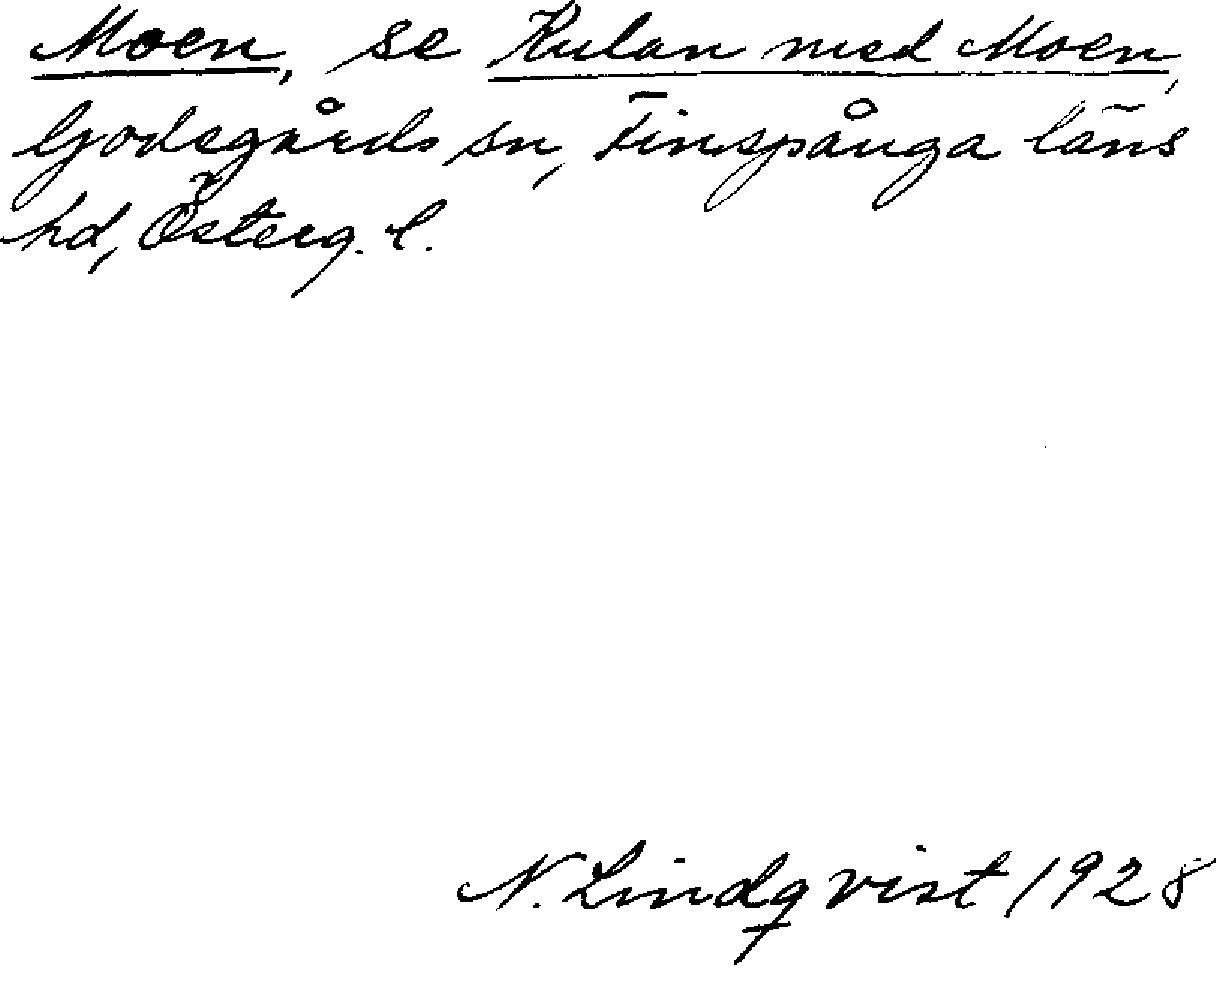 Moen, se Kulan med Moen,
Godegårds sn, Finspånga läns
hd, Österg. l.
N. Lindqvist 1928